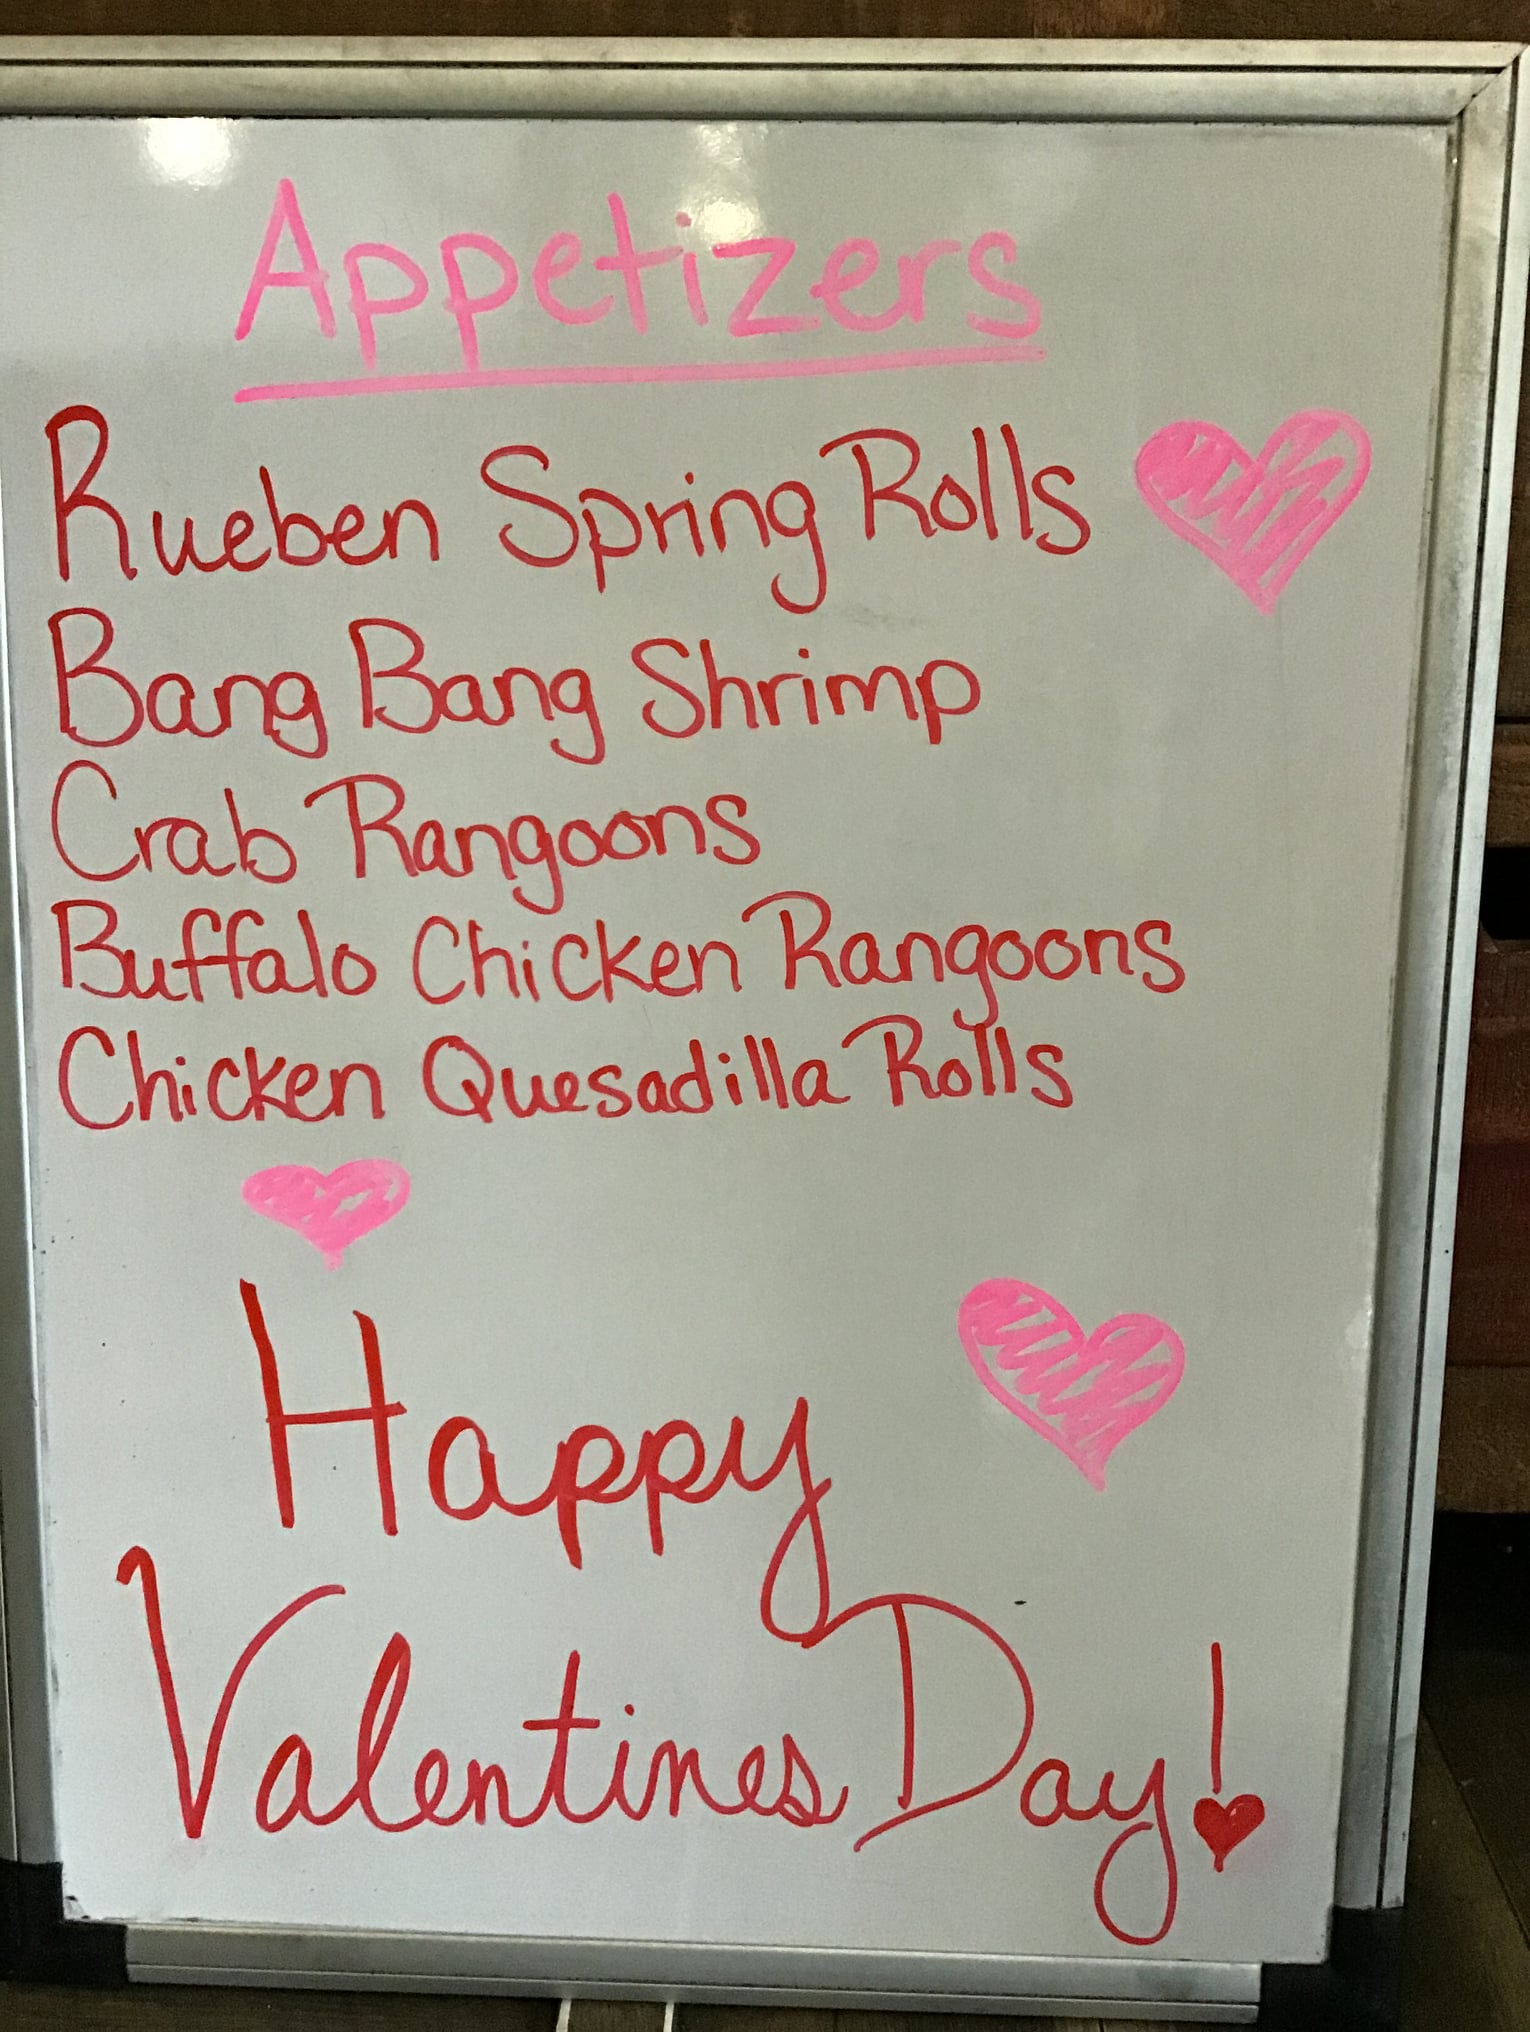 Appetizers
Rueben Spring Rolls
Bang Bang Shrimp
Crab Rangoons
Buffalo Chicken Rangoons
Chicken Quesadilla Rolls
Happy
Valentines Day!